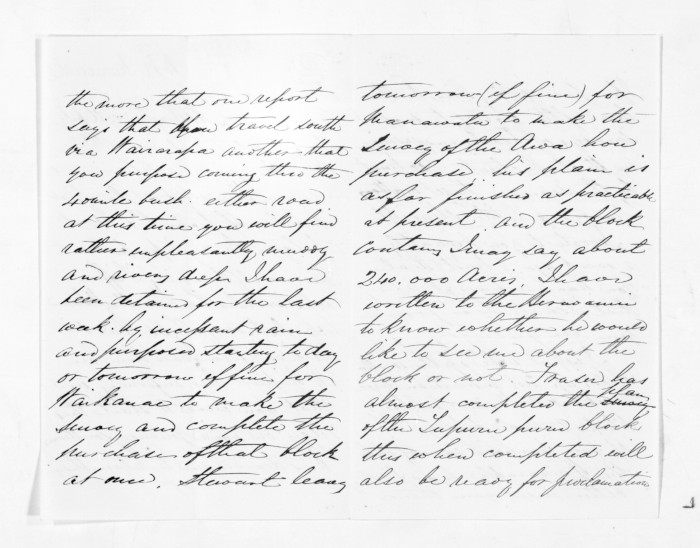 the more that one report
says that you travel south
via Wairarapa another that
you purpose coming thro the
40 mile bush. either road
at this time you will find
rather unpleasantly muddy
and rivers deep. I have
been detained for the last
week by incessant rain
and purposed starting to day
or tomorrow if fine for
Waikanae to make the
survey and complete the
purchase of that block
at once. Stewart leaves
tomorrow (if fine) for
Manawatu to make the
Survey of the Awa hou
purchase, his plan is
as far finished as practicable
at present and the block
contains I may say about
240.000 Acres, I have
written to the
to know whether he would
like to see me about the
block or not. Fraser has
almost completed the plan
of the Tupurupuru block
this when completed will
also be ready for proclamation